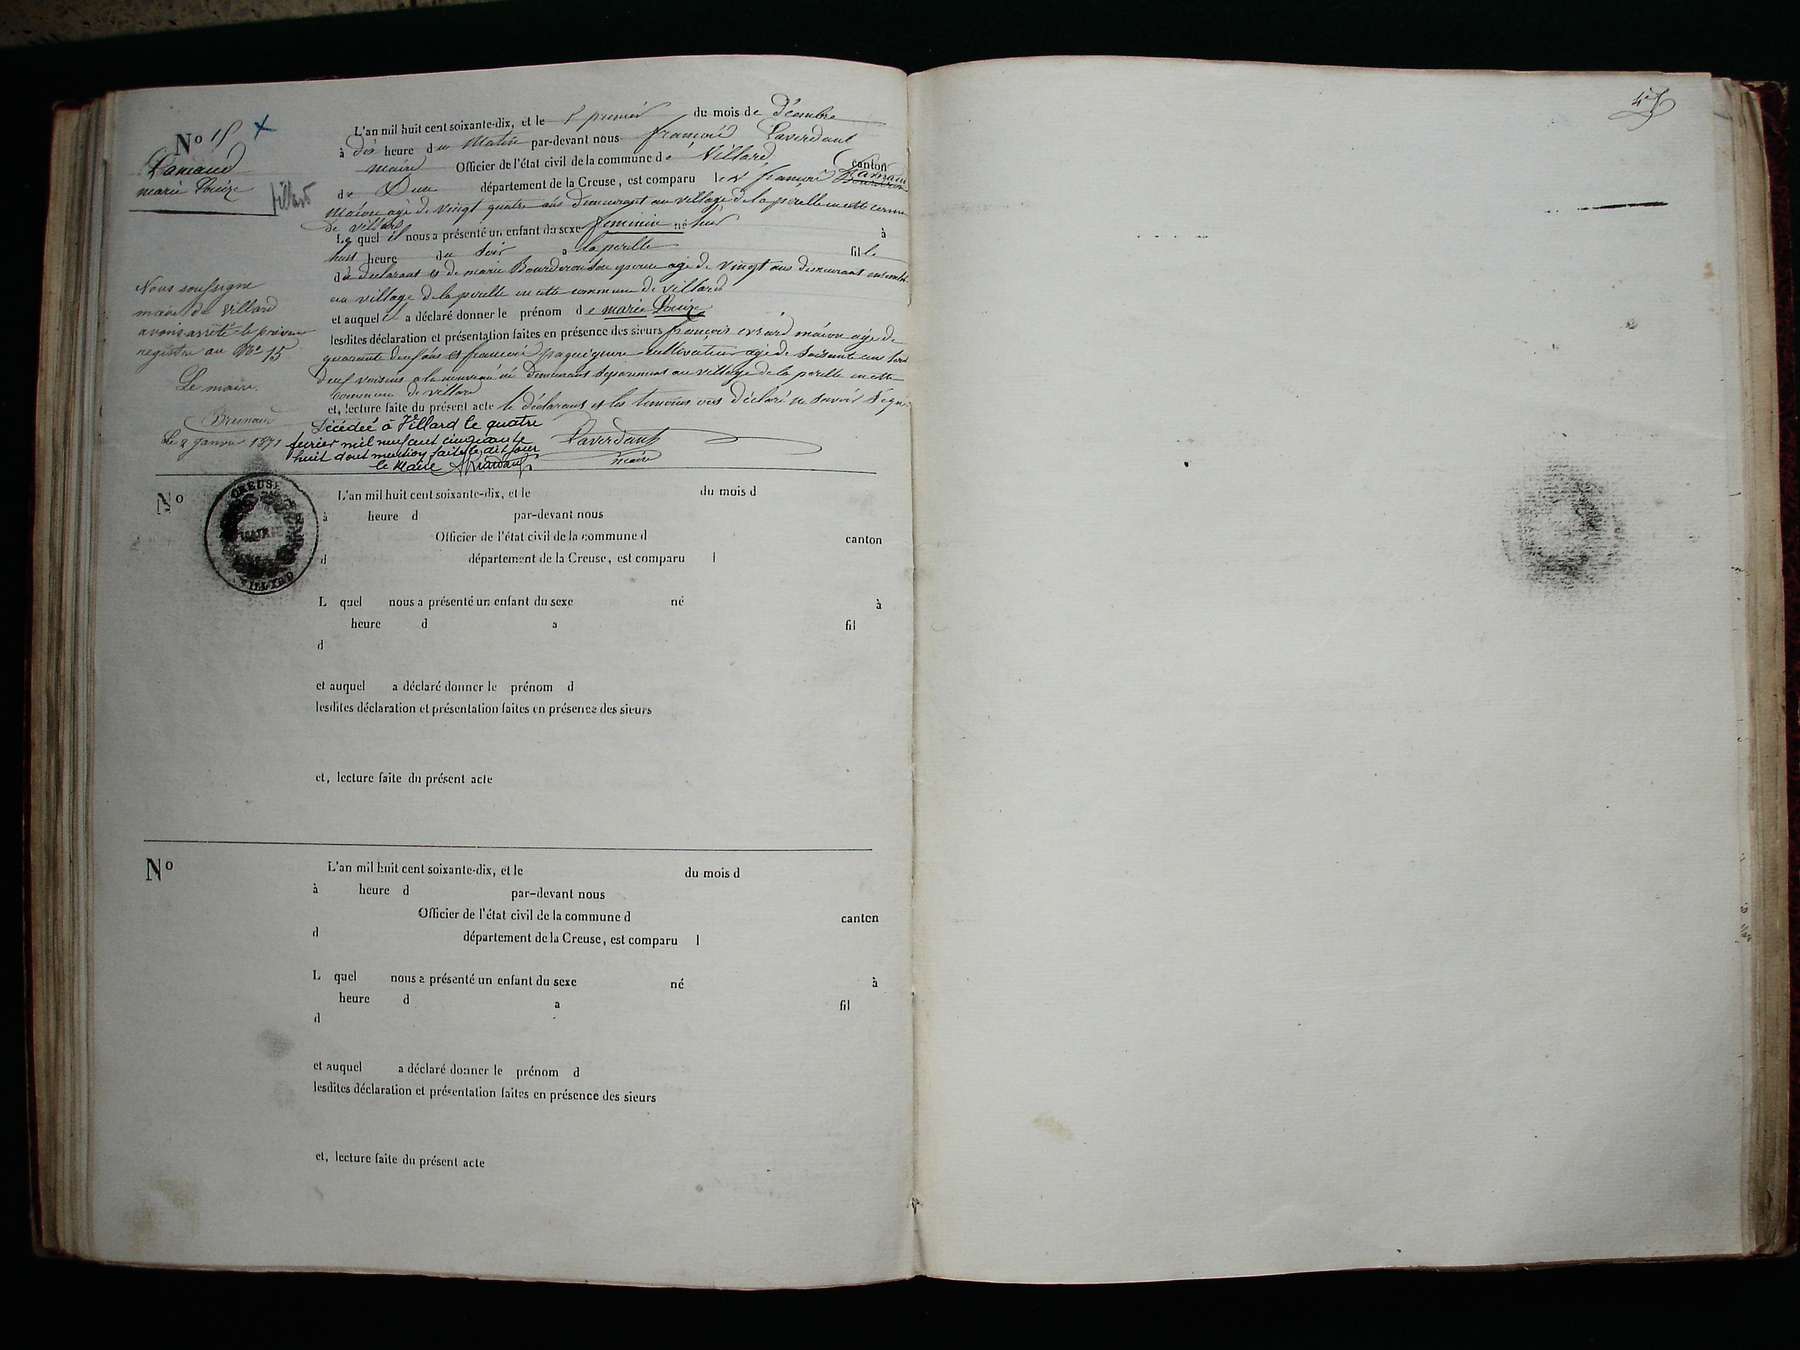 No 15
Lamaud
marie Louize
Villard
L'an mil huit cent soixante-dix, et le premier du mois de Décembre
à dix heure du Matin par-devant nous françois Laverdant
maire Officier de l'état civil de la commune de Villard canton
de Dun département de la Creuse, est comparu le sr françois
Maçon agé de vingt quatre ans demeurant au village de la perelle en cette commune
de villard
Le quel il nous a présenté un enfant du sexe feminin né hier à
huit heure du Soir a la perelle fille
du declarant et de marie son epouse agé de vingt ans demeurant ensemble
au village de la perelle en cette commune de villard
et auquel il a déclaré donner le prénom de marie Louize
lesdites déclaration et présentation faites en présence des sieurs françois maçon agé de
quarante deux ans et françois cultivateur agé de soixante ans tous
deux voisins a la nouveau né demeurant séparément au village de la perelle en cette
commune de villard
et, lecture faite du présent acte le déclarant et les temoins ont déclaré ne savoir signer
Laverdant
maire
Décédée à Villard le quatre
fevrier mil neuf cent cinquante
huit dont mention faite le dit jour
le Maire
Nous soussigne
maire de Villard
avons arrêté le présent
registre au No 15
Le maire.
Le 2 Janvier 1871
CREUSE
MAIRIE
VILLARD
No
L'an mil huit cent soixante-dix, et le du mois d
à heure d par-devant nous
Officier de l'état civil de la commune d canton
d département de la Creuse, est comparu l
L quel nous a présenté un enfant du sexe né à
heure d a fil
d
et auquel a déclaré donner le prénom d
lesdites déclaration et présentation faites en présence des sieurs
et, lecture faite du présent acte
No
L'an mil huit cent soixante-dix, et le du mois d
à heure d par-devant nous
Officier de l'état civil de la commune d canton
d département de la Creuse, est comparu l
L quel nous a présenté un enfant du sexe né à
heure d a fil
d
et auquel a déclaré donner le prénom d
lesdites déclaration et présentation faites en présence des sieurs
et, lecture faite du présent acte